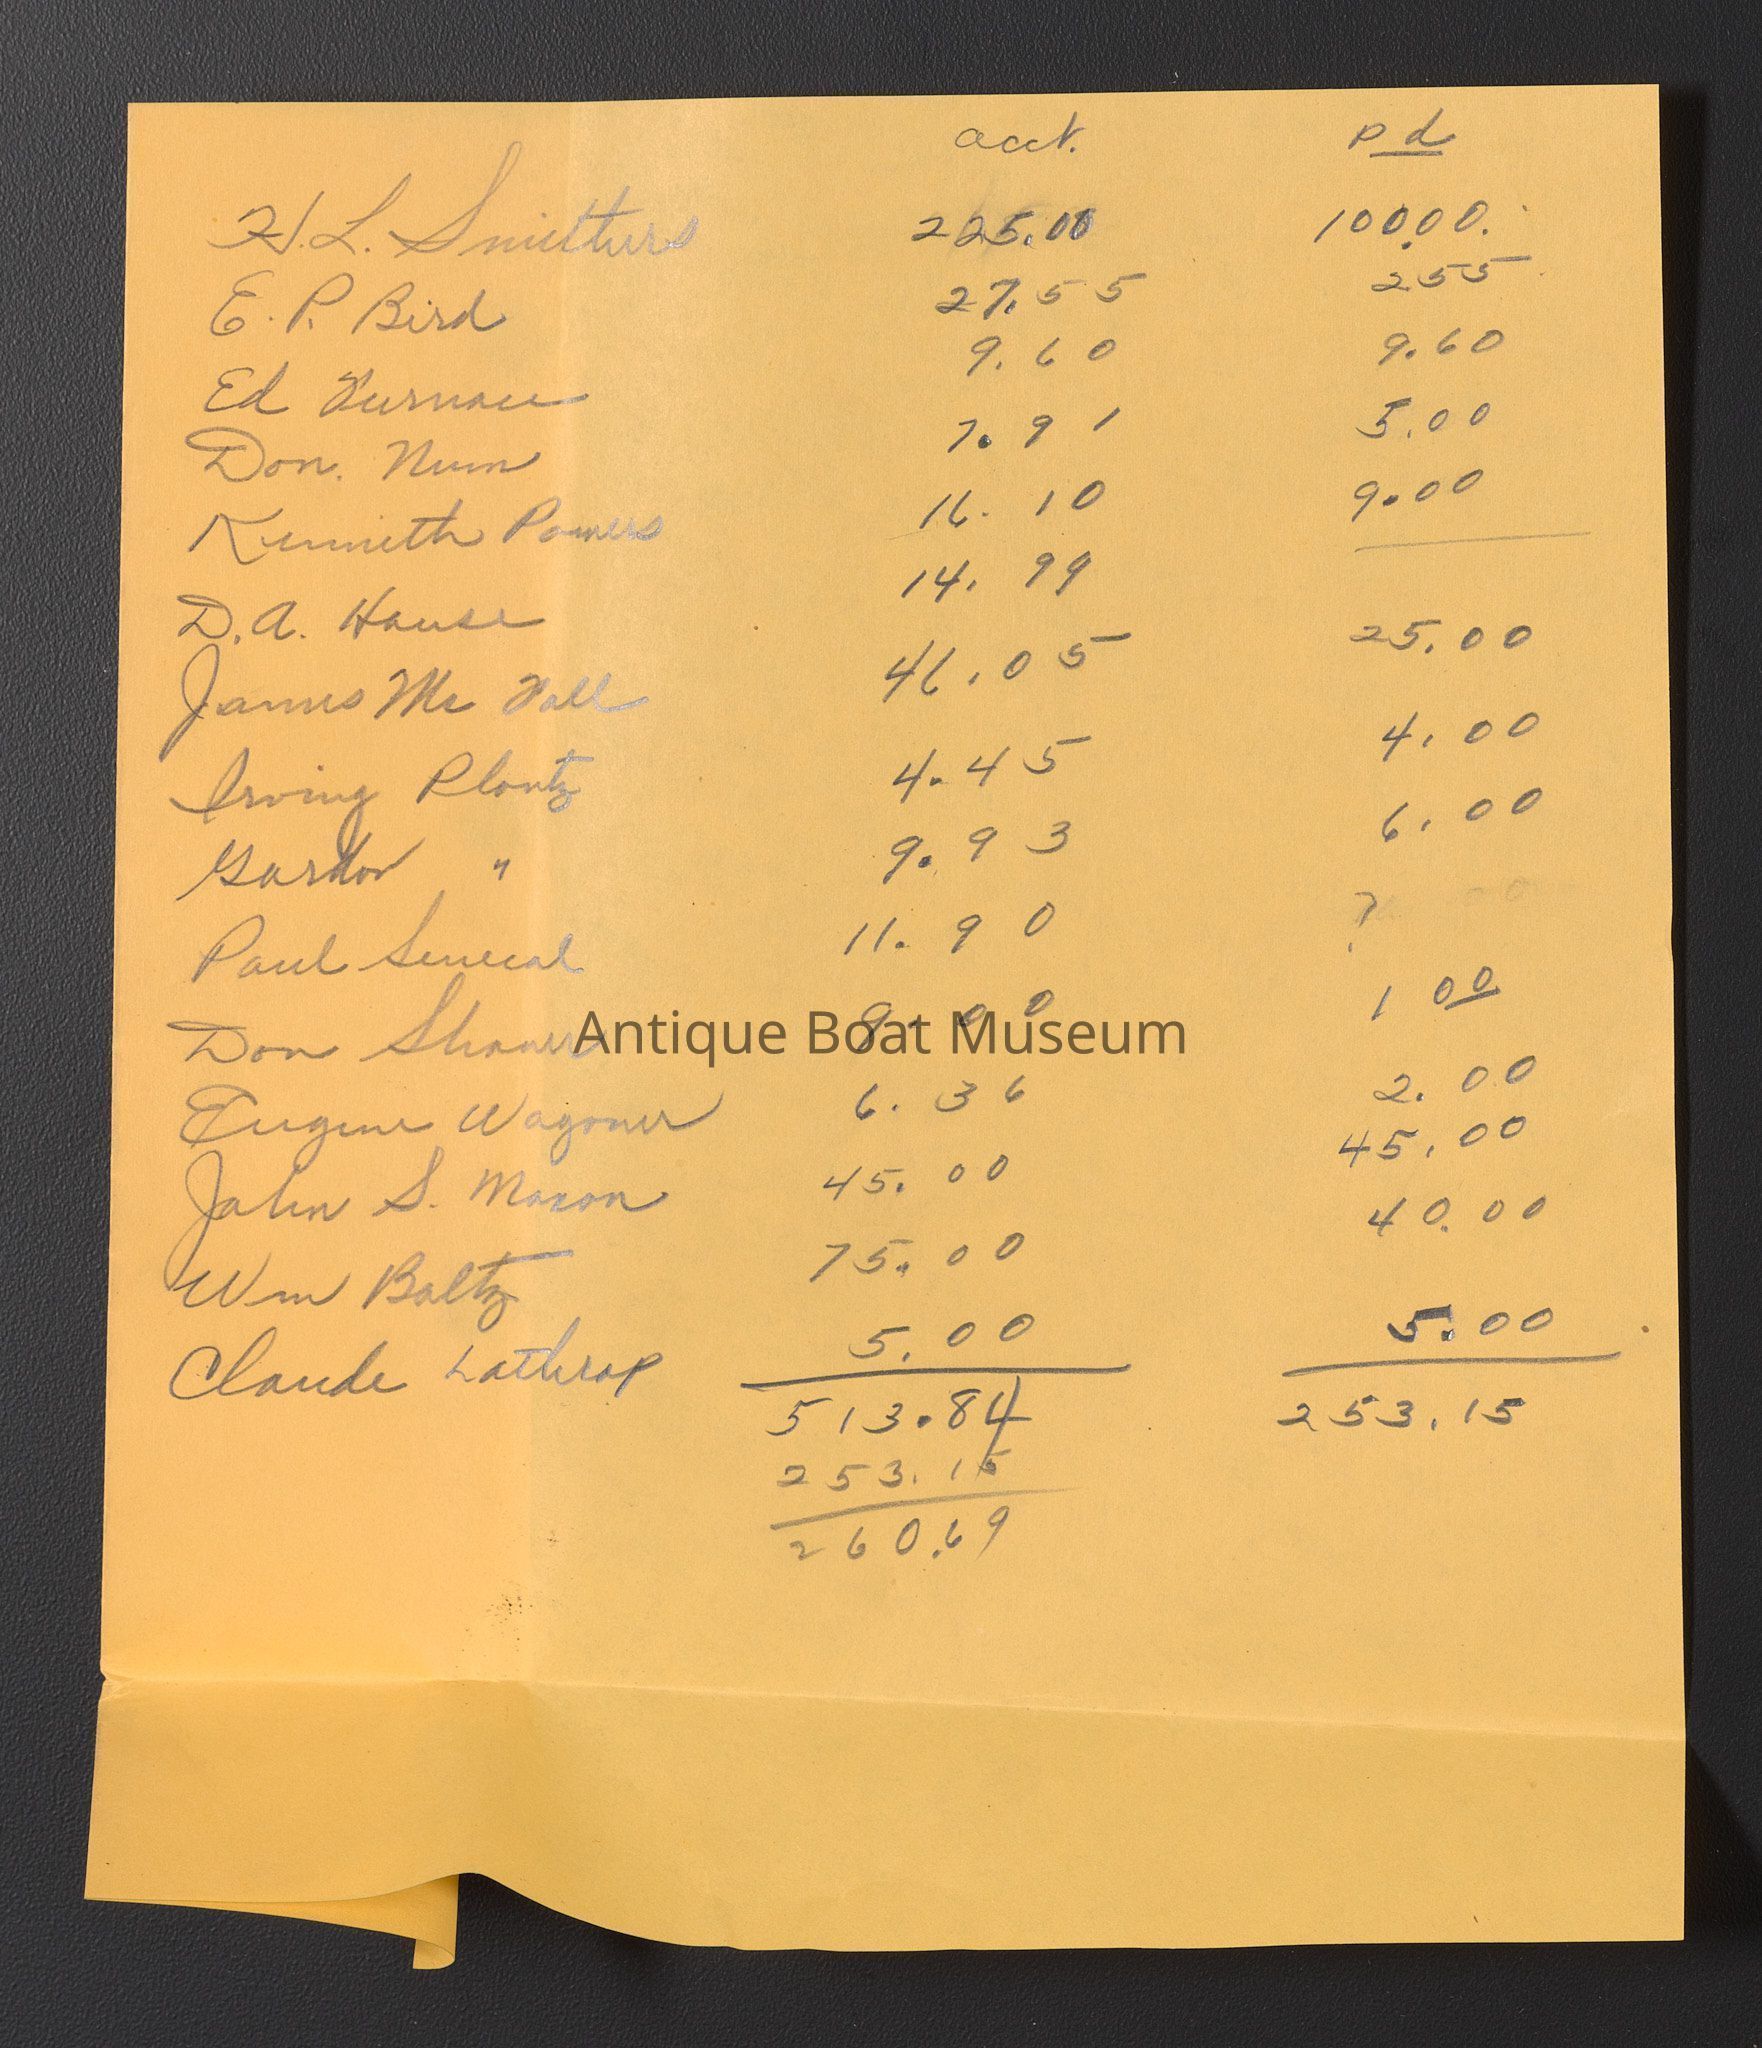 acct. pd
H. L. Smithers 225.00 100.00.
E. P. Bird 27.55 2 55
Ed Furnace 9.60 9.60
Don. Num 7.91 5.00
Kenneth Powers 16.10 9.00
D. A. House 14.99
James Mc Fall 46.05 25.00
Irving Plontz 4.45 4.00
Gordon " 9.93 6.00
Paul Senecal 11.90 ?
Don 8.00 1 00
Eugene Wagoner 6.36 2.00
John S. Maxon 45.00 45.00
Wm Baltz 75.00 40.00
Claude Lathrop 5.00 5.00
513.84 253.15
253.15
260.69
Antique Boat Museum